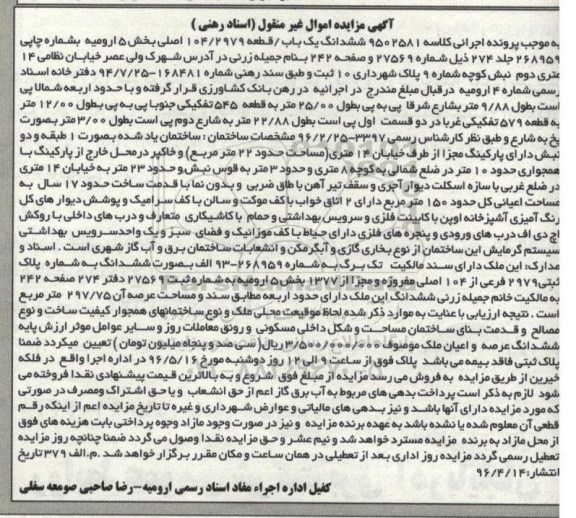 آگهی مزایده اموال غیر منقول (اسناد رهنی)
به موجب پرونده اجرائی کلاسه 9502581 ششدانگ یک باب / قطعه 104/2979 اصلی بخش 5 ارومیه بشماره چاپی
268959 جلد 274 ذیل شماره 27569 و صفحه 242 بنام جمیله زرنی در آدرس شهرک ولی عصر خیابان نظامی 14
متری دوم نبش کوچه شماره 9 پلاک شهرداری 10 ثبت و طبق سند رهنی شماره 168481-94/7/25 دفتر خانه اسناد
رسمی شماره 4 ارومیه در قبال مبلغ مندرج در اجرائیه در رهن بانک کشاورزی قرار گرفته و با حدود اربعه شمالا پی
است بطول 9/88 متر بشارع شرقا پی به پی بطول 25/00 متر به قطعه 545 تفکیکی جنوبا پی به پی بطول 12/00 متر
به قطعه 579 تفکیکی غربا در دو قسمت اول پی است بطول 22/88 متر به شارع دوم پی است بطول 3/00 متر بصورت
پخ به شارع و طبق نظر کارشناس رسمی 3397-96/2/25 مشخصات ساختمان: ساختمان یاد شده بصورت 1 طبقه و دو
نبش دارای پارکینگ مجزا از طرف خیابان 14 متری (مساحت حدود 22 متر مربع) و خاکبر در محل خارج از پارکینگ با
همجواری حدود 10 متر در ضلع شمالی به کوچه 8 متری و حدود 3 متر به قوس نبش و حدود 23 متر به خیابان 14 متری
در ضلع غربی با سازه اسکلت دیوار آجری و سقف تیر آهن با طاق ضربی و بدون نما با قدمت ساخت حدود 17 سال به
مساحت اعیانی کل حدود 150 متر مربع دارای 2 اتاق خواب با کف موکت و سالن با کف سرامیک و پوشش دیوار های کل
رنگ آمیزی آشپزخانه اوپن با کابینت فلزی و سرویس بهداشتی و حمام با کاشیکاری متعارف و درب های داخلی با روکش
اچ دی اف درب های ورودی و پنجره های فلزی دارای حیاط با کف موزائیک و فضای سبز و یک واحد سرویس بهداشتی
سیستم گرمایش این ساختمان از نوع بخاری گازی و آبگرمکن و انشعابات ساختمان برق و آب گاز شهری است. اسناد و
مدارک: این ملک دارای سند مالکیت تک برگ به شماره 268959-93 الف بصورت ششدانگ به شماره پلاک
ثبتی 2979 فرعی از 104 اصلی مفروزه و مجزا از 1377 بخش 5 ارومیه به شماره ثبت 27569 دفتر 274 صفحه 242
به مالکیت خانم جمیله زرنی ششدانگ این ملک دارای حدود اربعه مطابق سند و مساحت عرصه آن 297/75 متر مربع
است. نتیجه ارزیابی با عنایت به موارد ذکر شده لحاظ موقعیت محلی ملک و نوع ساختمانهای همجوار کیفیت ساخت و نوع
مصالح و قدمت بنای ساختمان مساحت و شکل داخلی مسکونی و رونق معاملات روز و سایر عوامل موثر ارزش پایه
ششدانگ عرصه و اعیان ملک موصوف به مبلغ ریال (سی صد و پنجاه میلیون تومان) تعیین میگردد ضمنا
پلاک ثبتی فاقد بیمه می باشد پلاک فوق از ساعت 9 الی 12 روز دوشنبه مورخ 96/5/16 در اداره اجرا واقع در فلکه
خیرین از طریق مزایده به فروش می رسد مزایده از مبلغ فوق شروع و به بالاترین قیمت پیشنهادی نقدا فروخته می
شود لازم به ذکر است پرداخت بدهی های مربوط به آب برق گاز اعم از حق انشعاب و یا حق اشتراک و مصرف در صورتی
که مورد مزایده دارای آنها باشد و نیز بدهی های مالیاتی و عوارض شهرداری و غیره تا تاریخ مزایده اعم از اینکه رقم
قطعی آن معلوم شده یا نشده باشد به عهده برنده مزایده و نیز در صورت وجود مازاد وجوه پرداختی بابت هزینه های فوق
از محل مازاد به برنده مزایده مسترد خواهد شد و نیم عشر و حق مزایده نقدا وصول می گردد ضمنا چنانچه روز مزایده
تعطیل رسمی گردد مزایده روز اداری بعد از تعطیلی در همان ساعت و مکان مقرر برگزار خواهد شد. م. الف 379 تاریخ
انتشار: 96/4/14
کفیل اداره اجراء مفاد اسناد رسمی ارومیه - رضا صاحبی صومعه سفلی